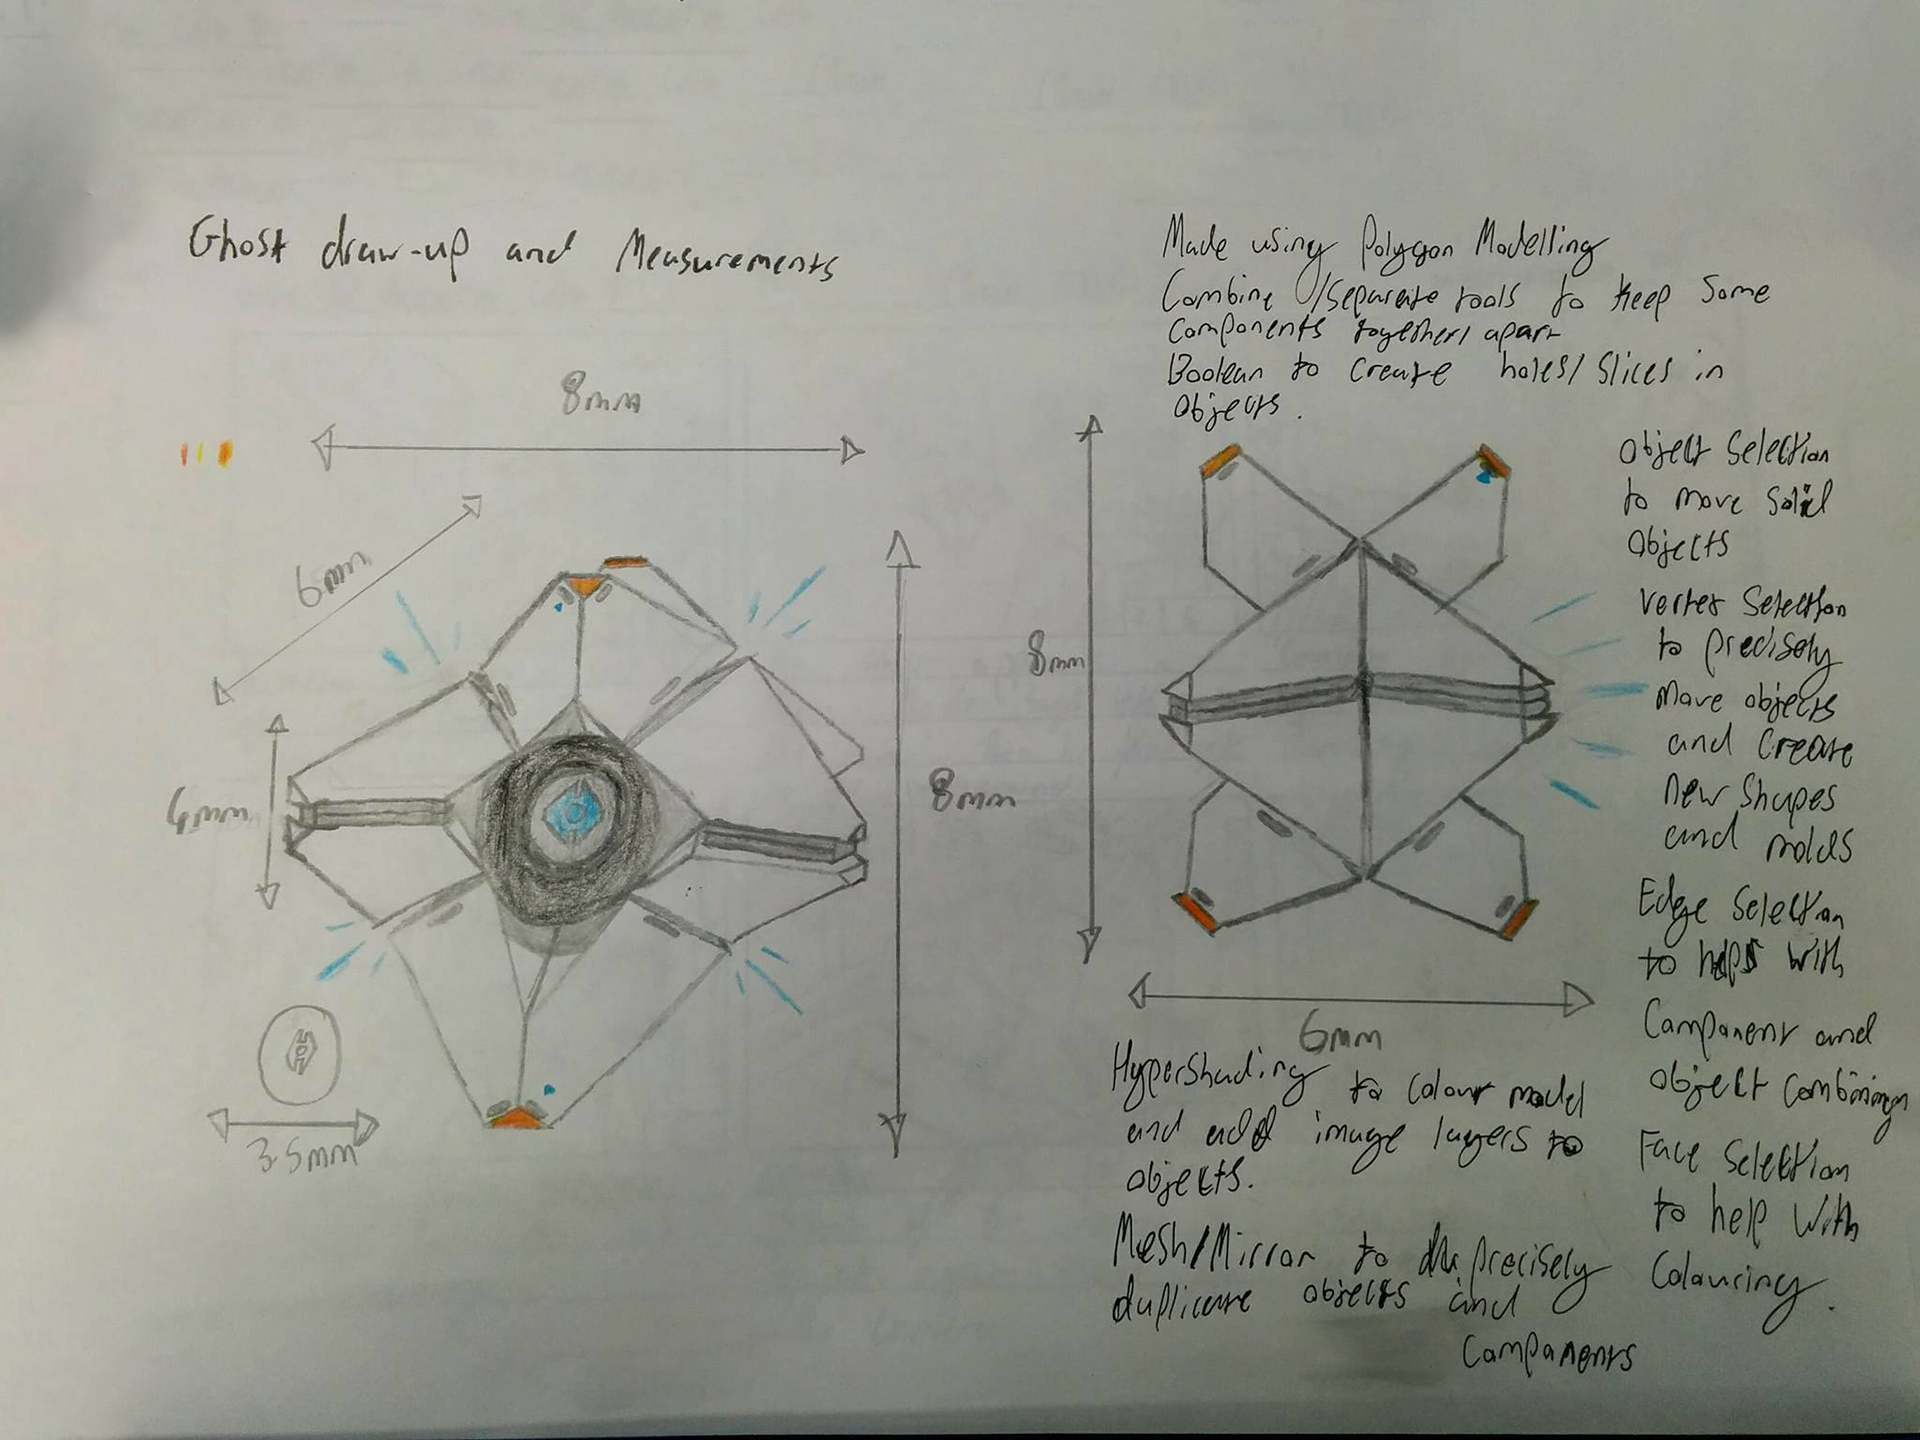 Ghost draw-up and Measurements
8mm
6mm
8mm
3.5mm
Made using Polygon Modelling
Combine /Separate tools to keep Some
Components together/ apart
Boolean to Create holes/ Slices in
Objects.
8mm
6mm
Object Selection
to move Solid
Objects
Vertex Selection
to precisely
Move objects
and Create
new Shapes
and molds
Edge Selection
to help with
Component and
object Combining
Face Selection
to help With
Colouring.
Hypershading to Colour model
and add image layers to
objects.
Mesh/Mirror to precisely
duplicate objects and
Components